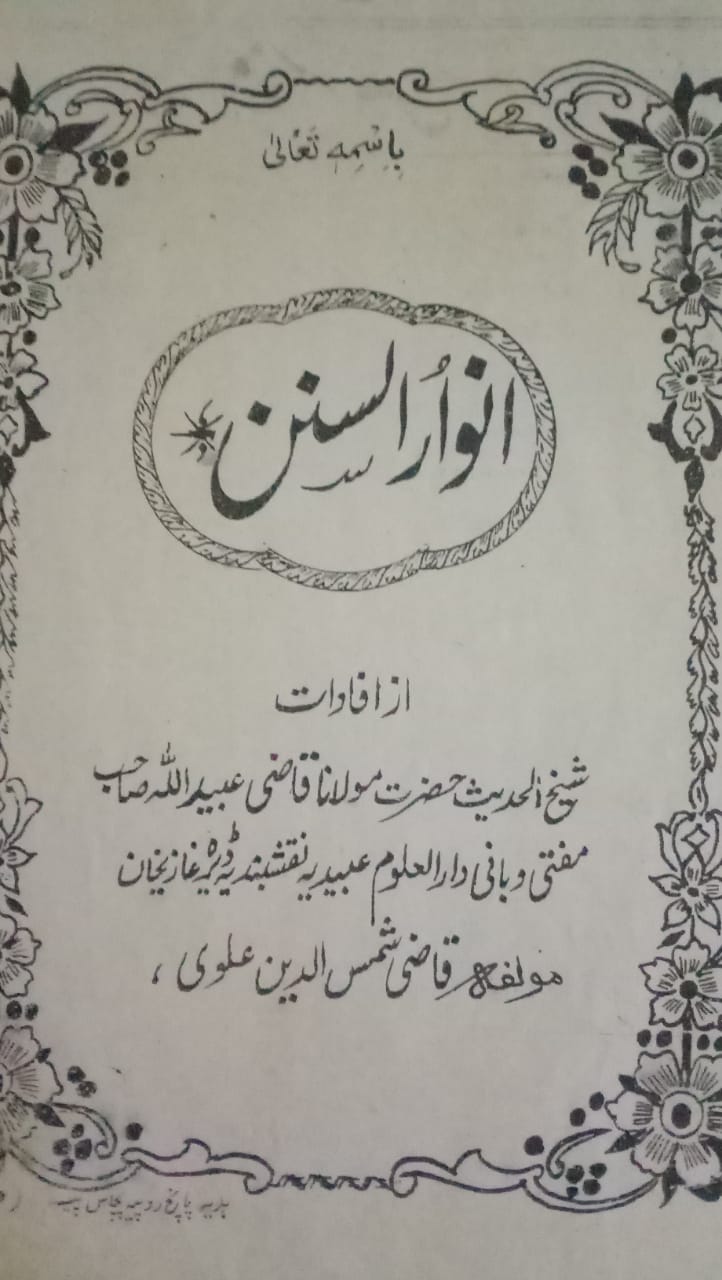 بِاسْمِهٖ تَعَالیٰ
انوارُ السنن
از افادات
شیخ الحدیث حضرت مولانا قاضی عبید اللہ صاحب
مفتی و بانی دار العلوم عبیدیہ نقشبندیہ ڈیرہ غازیخان
مولفہ قاضی شمس الدین علوی ،
ہدیہ پانچ روپیہ پچاس پیسہ